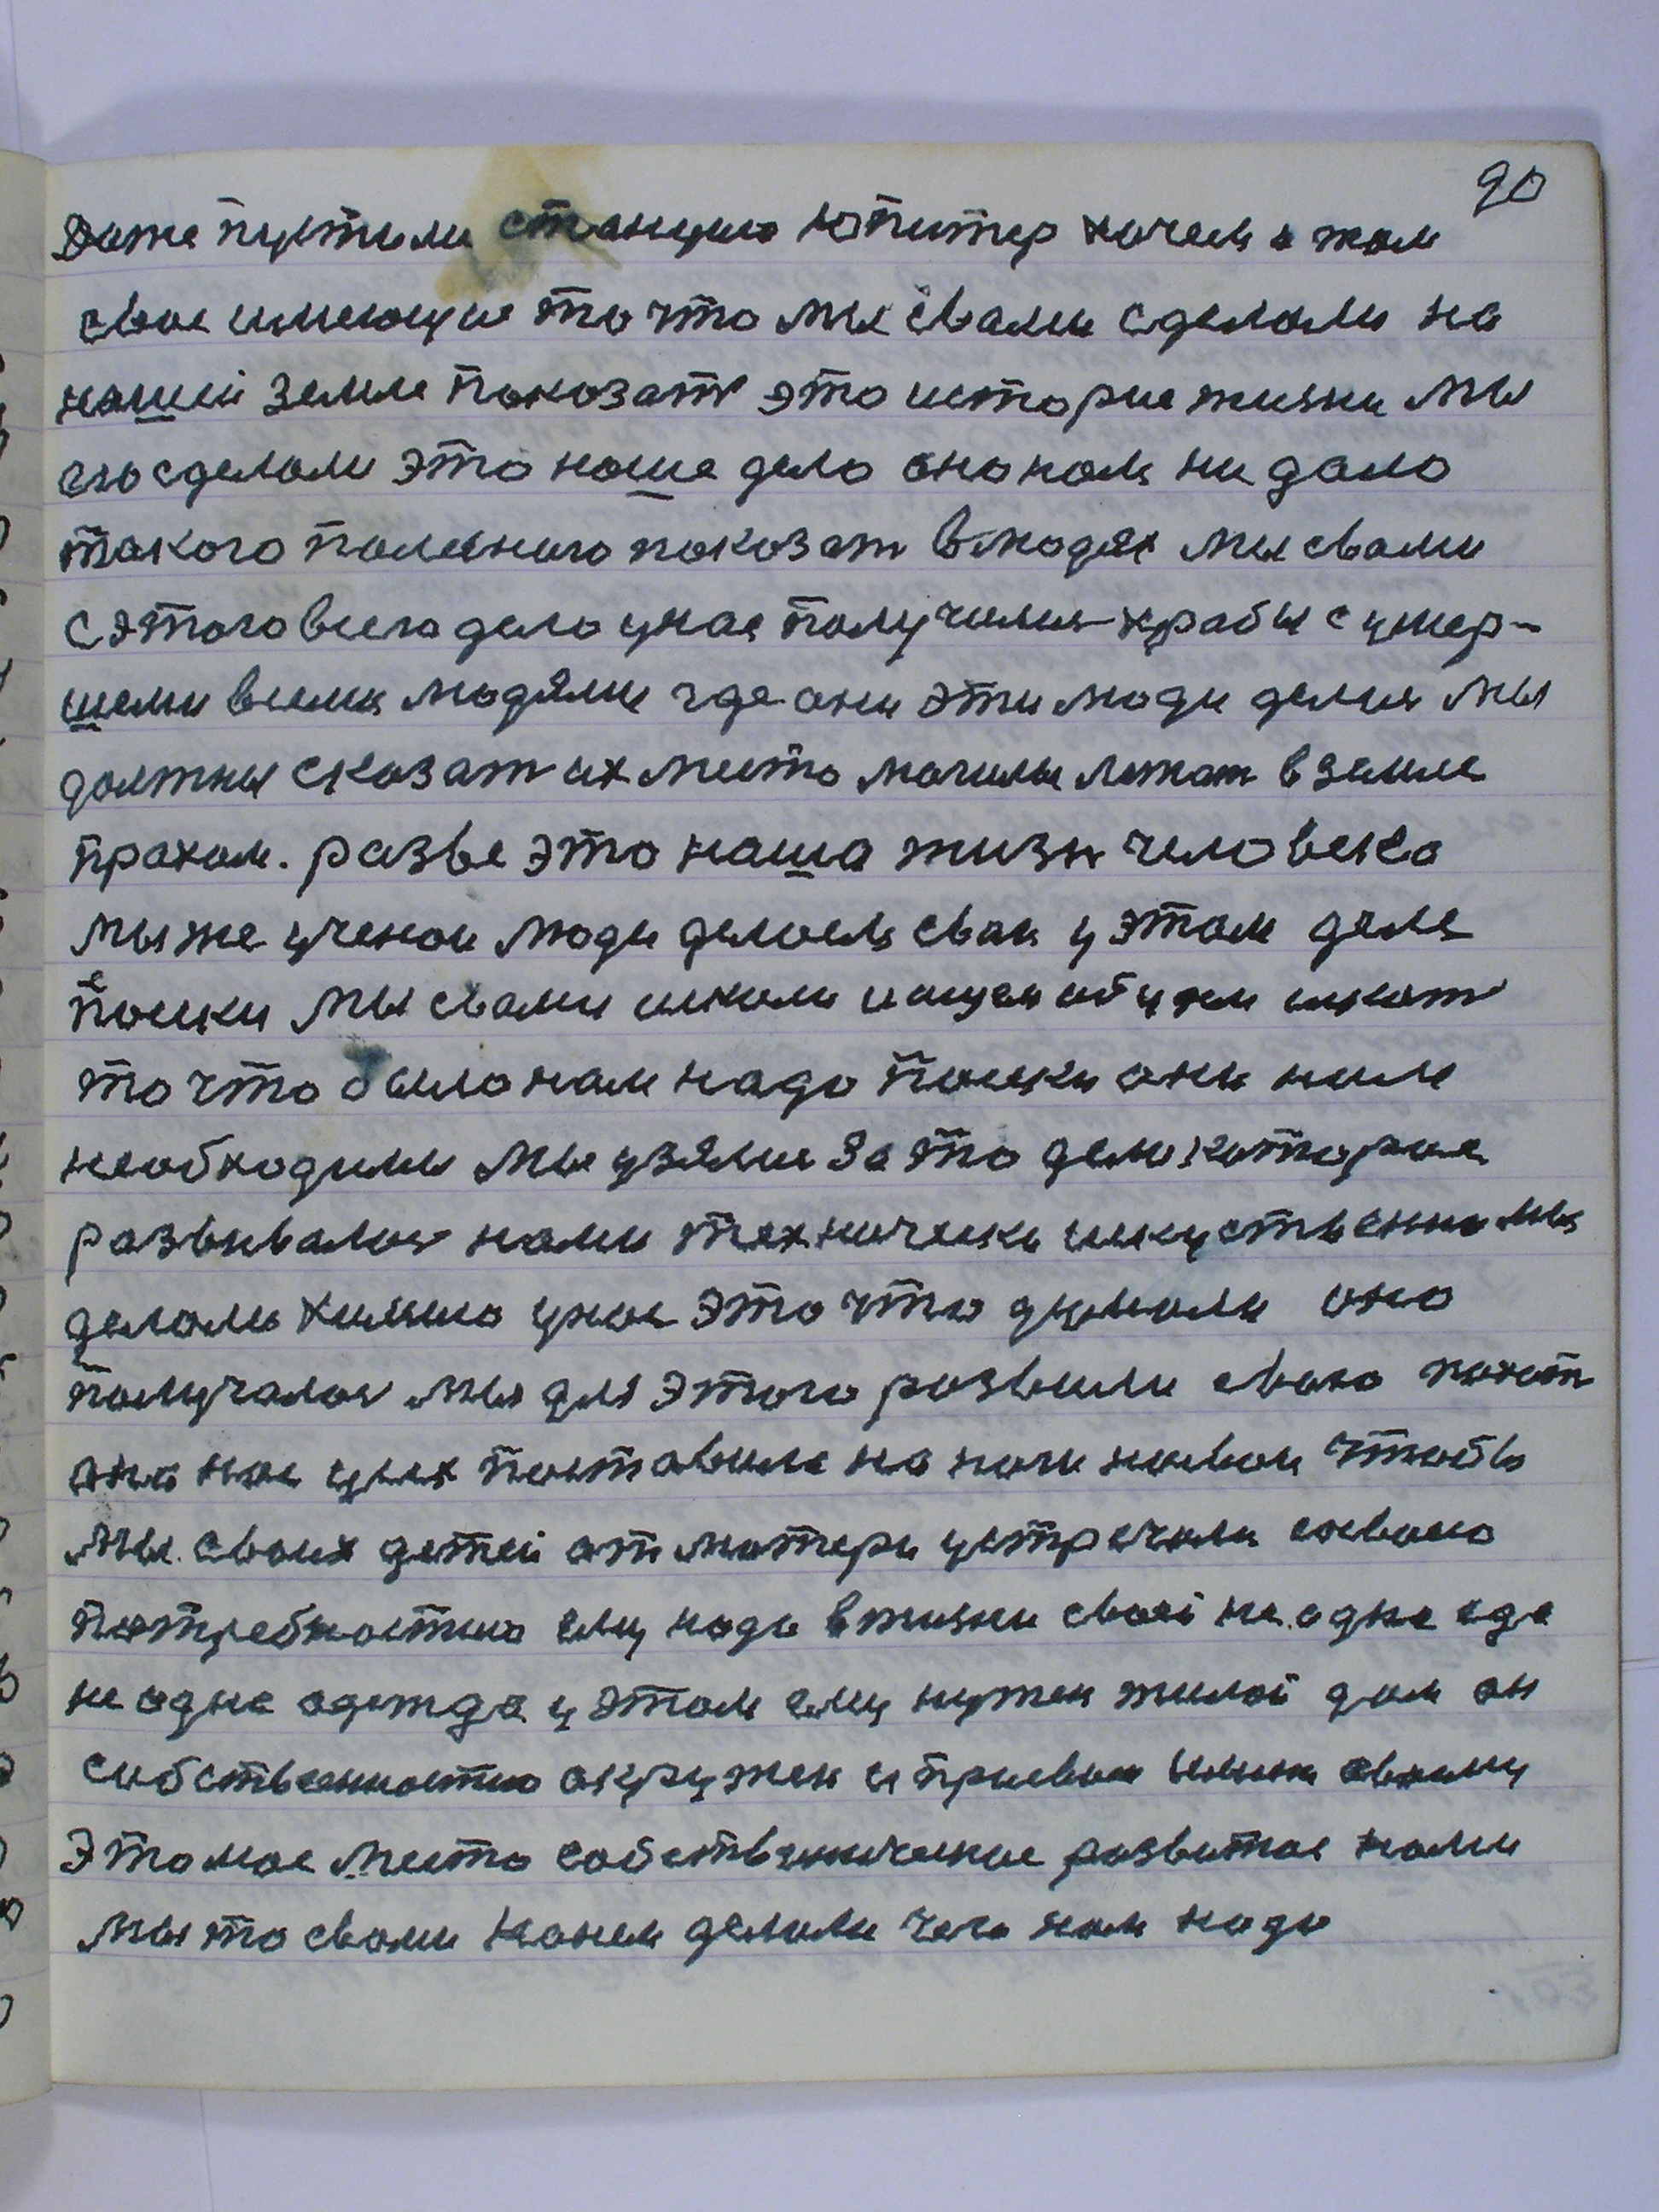 90
Даже пустили станцию Юпитер хочем о том
свое имеющие то что мы свами сделали на
нашей земле показат это история жизни мы
его сделали это наше дело оно нам ни дало
такого полезного показат влюдях мы свами
сэтого всего дело унас получились храбы сумер-
шеми всеми людями где они эти люди делис мы
должны сказат их место могилы лежат вземле
прахом. разве это наша жизн человека
мыже ученои люди делоем сваи уэтом деле
поиски мы свами искали ищем и будем искат
точто было нам надо поиски они ними
необходими мы узялис за то дело которое
развивалос нами технически искуственно мы
делали химию унас это что думали оно
получалос мы для этого развили свою
оно нас усех поставила на ноги новои чтобы
мы своих детей от матери устречали
потребностию ему надо вжизни своей не одна еда
не одна одежда уэтом ему нужен жилой дом он
собственностию окружен и присвои своему
Это мое место собственическое развитое нами
мы то свами делали чего нам надо